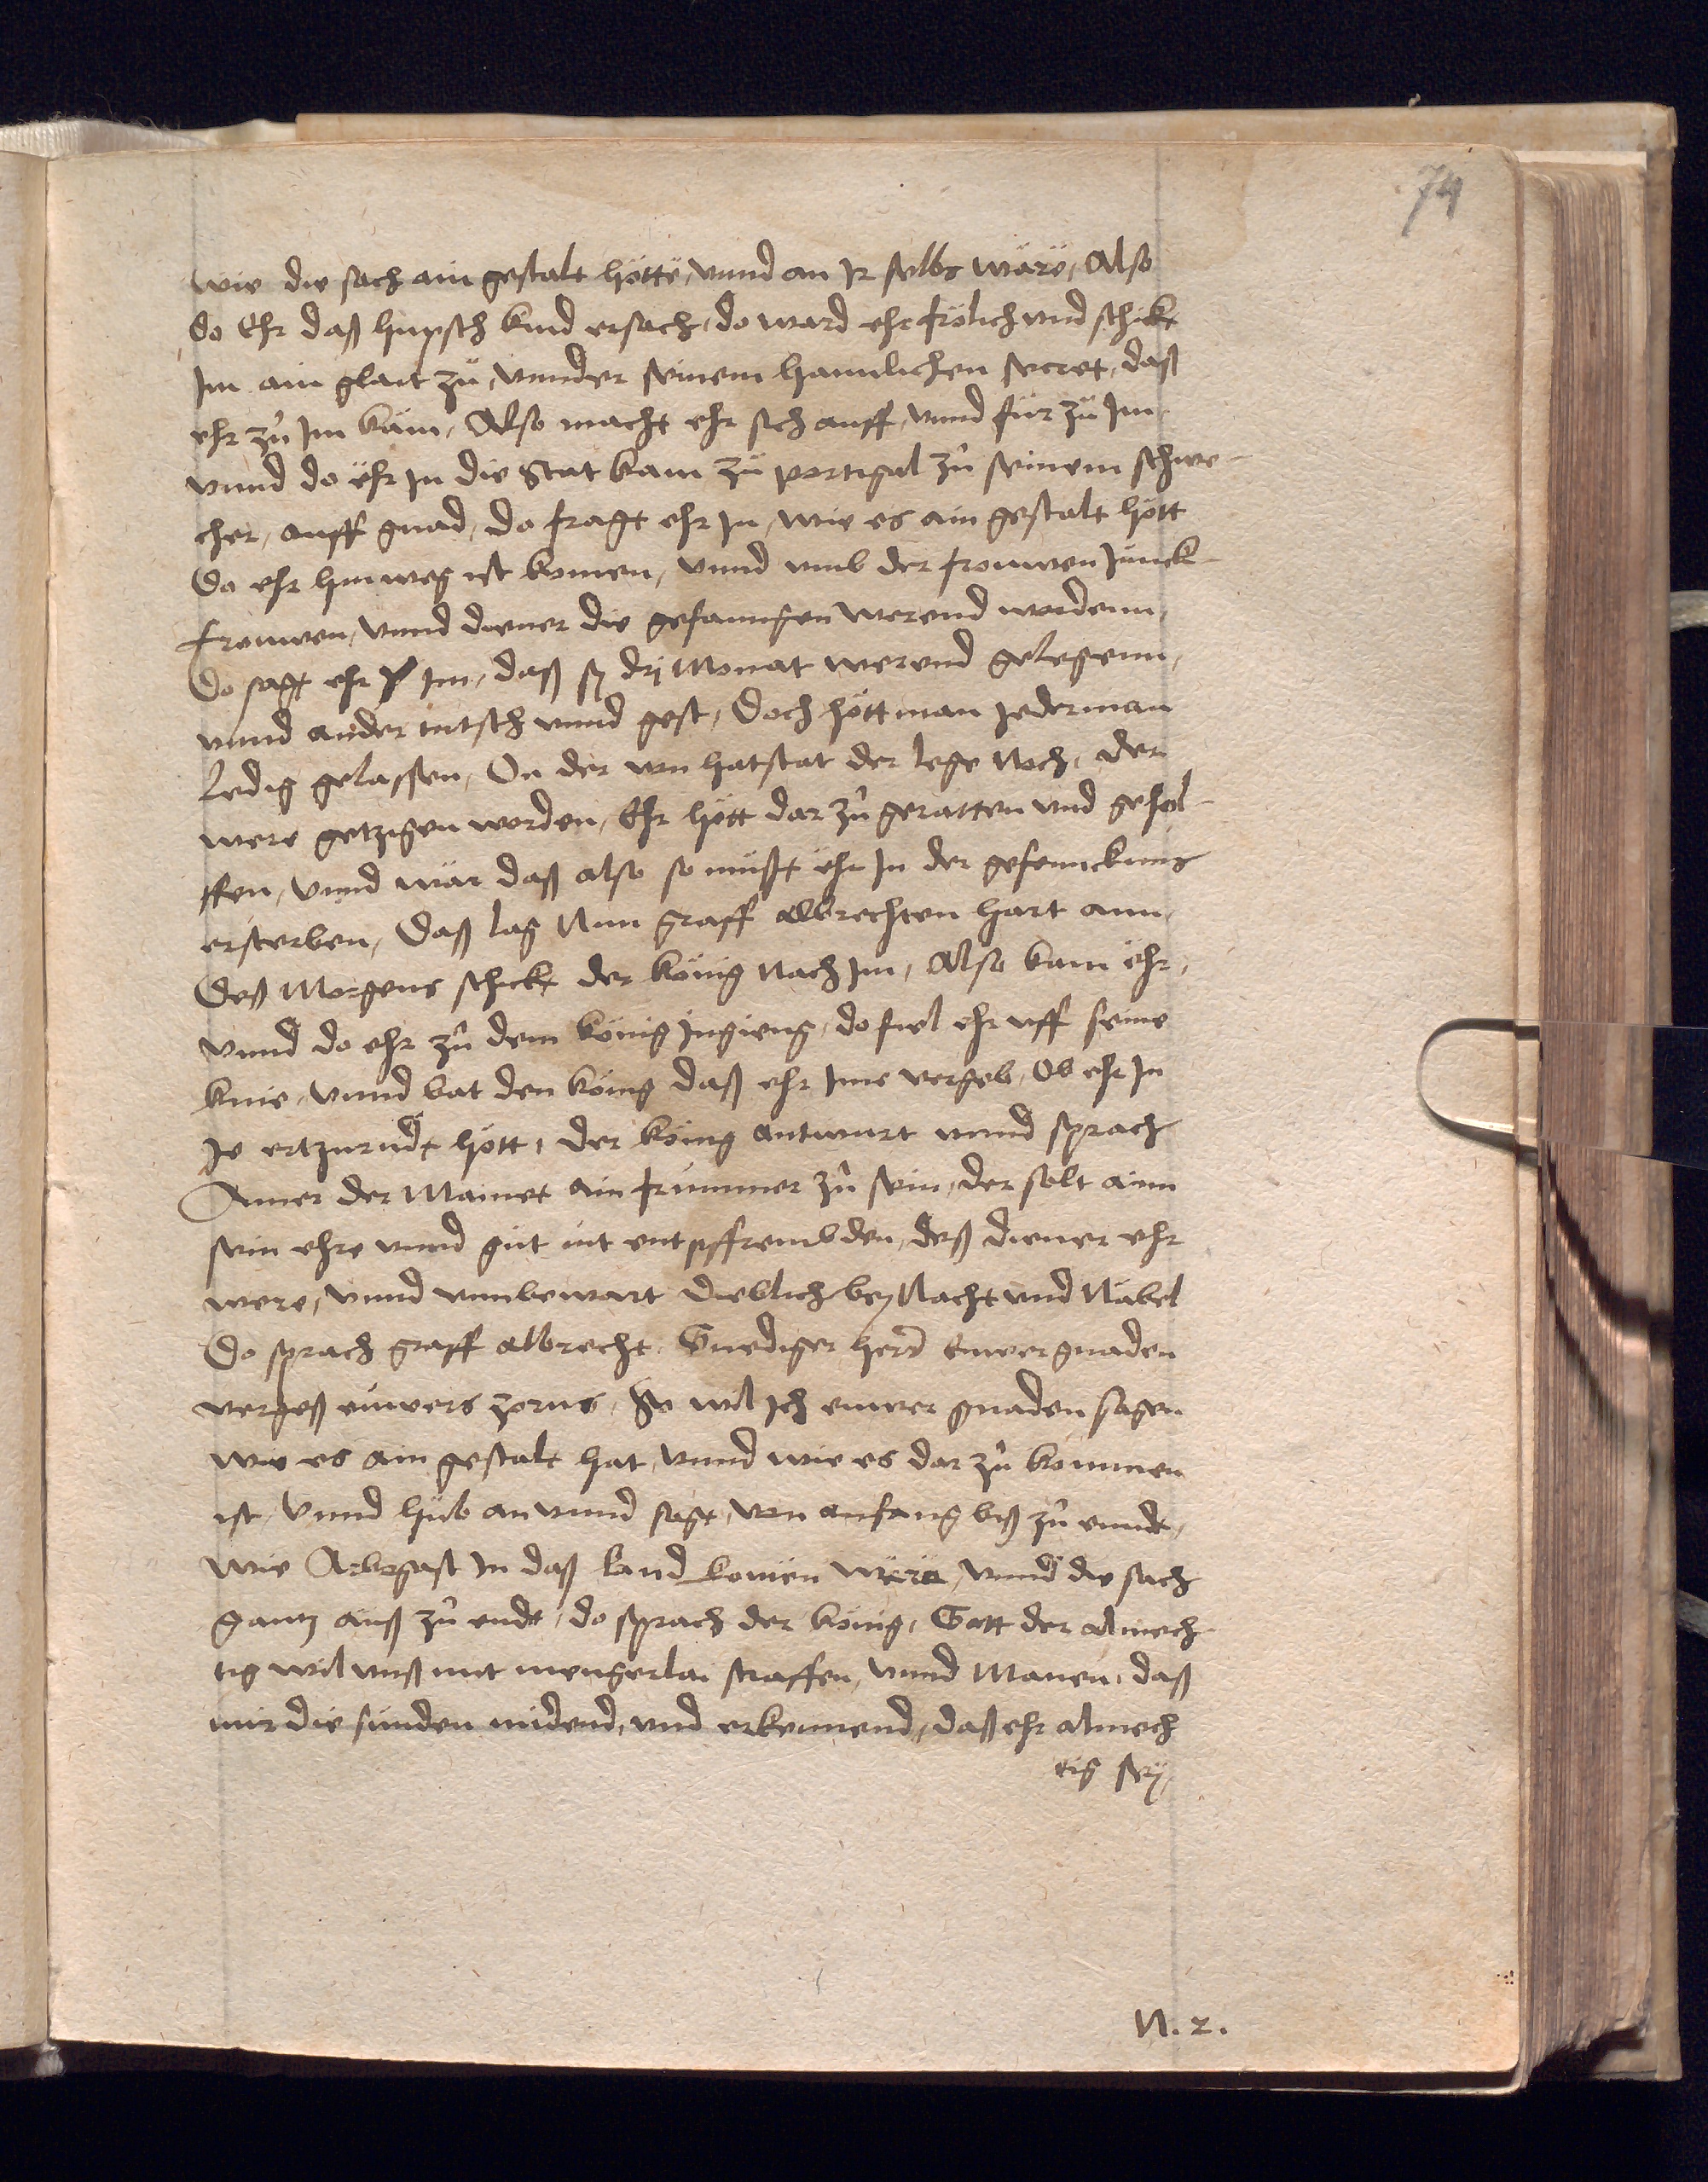 74
wie die sach ain gestalt hötte, vnnd an Ir selbs wäre, Also
do Ehr daß hupsch kind ersach, do ward ehr frölich vnd schickt
Im ain glait zů, vnnder seinem haimlichen secret, daß
ehr zů Im käm, Also macht ehr sich auff, vnnd fůr zů Im,
vnnd do ehr In die Stat kam zů portigal zů seinem schwe-
cher, auff gnad, do fragt ehr In, wie es ain gestalt hött
Da ehr hinweg ist komen, vnnd vmb der frouwen Junck-
frouwen, vnnd diener die gefanngen werend wordenn,
Do sagt ehr Im, daß sy dry Monat werend gelegenn,
vnnd ander tutsch vnnd gest, Doch hött man Jederman
Ledig gelassen, On der von hatstat der lege Noch, der
were getzigen worden, Ehr hött dar zů geratten vnd gehol-
ffen, vnnd wär daß also so můßt ehr In der gefennckung
ersterben, Daß lag Nun graff albrechten hart ann,
Deß Morgens schickt der könig Nach Im, Also kam ehr,
vnnd do ehr zů dem könig Ingieng, do fiel ehr vff seine
knie, vnnd bat den könig daß ehr Ime vergeb, Ob ehr In
Je ertzurndt hött, der könig antwurt vnnd sprach
Ainer der Mainet ain frummer zů sein, der solt aim
sein ehre vnnd gůt nit entpffrembden, deß diener ehr
were, vnnd vnnbewart dieblich bey Nacht vnd Näbel
Do sprach graff albrecht, Gnediger herr Euwer gnaden
vergeß euwers zorns, So wil Ich euwer gnaden sagen
wie es ain gestalt hat, vnnd wie es dar zů kommen
ist, Vnnd hůb an vnnd sagt, von anfang biß zů ennde,
wie Arbogast In daß land komen wäre, vnnd die sach
gantz auß zů ende, do sprach der könig, Gott der almech-
tig wil vnß mit mengerlai straffen, vnnd Manen, daß
mir die sünden midend, vnd erkennend, daß ehr almech
tig sey,
N. 2.